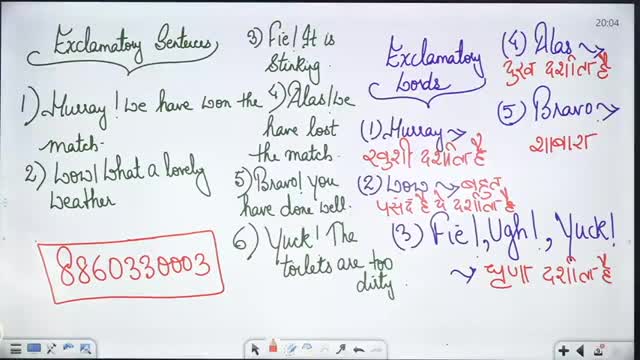 20:04
Exclamatory Sentences
1) Hurray! We have won the
match.
2) Wow! What a lovely
weather
8860330003
3) Fie! It is
stinking.
4) Alas! We
have lost
the match.
5) Bravo! You
have done well.
6) Yuck! The
toilets are too
dirty.
Exclamatory
Words
(1) Hurray
खुशी दर्शाता है
(2) Wow बहुत
पसंद है ये दर्शाता है
(3) Fie!, Ugh!, Yuck!
घृणा दर्शाता है
(4) Alas
दुख दर्शाता है
(5) Bravo
शाबाश